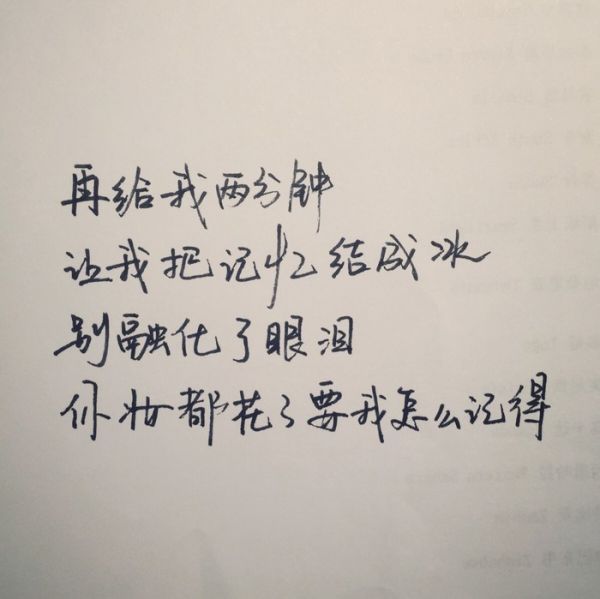 再给我两分钟
让我把记忆结成冰
别融化了眼泪
你妆都花了要我怎么记得